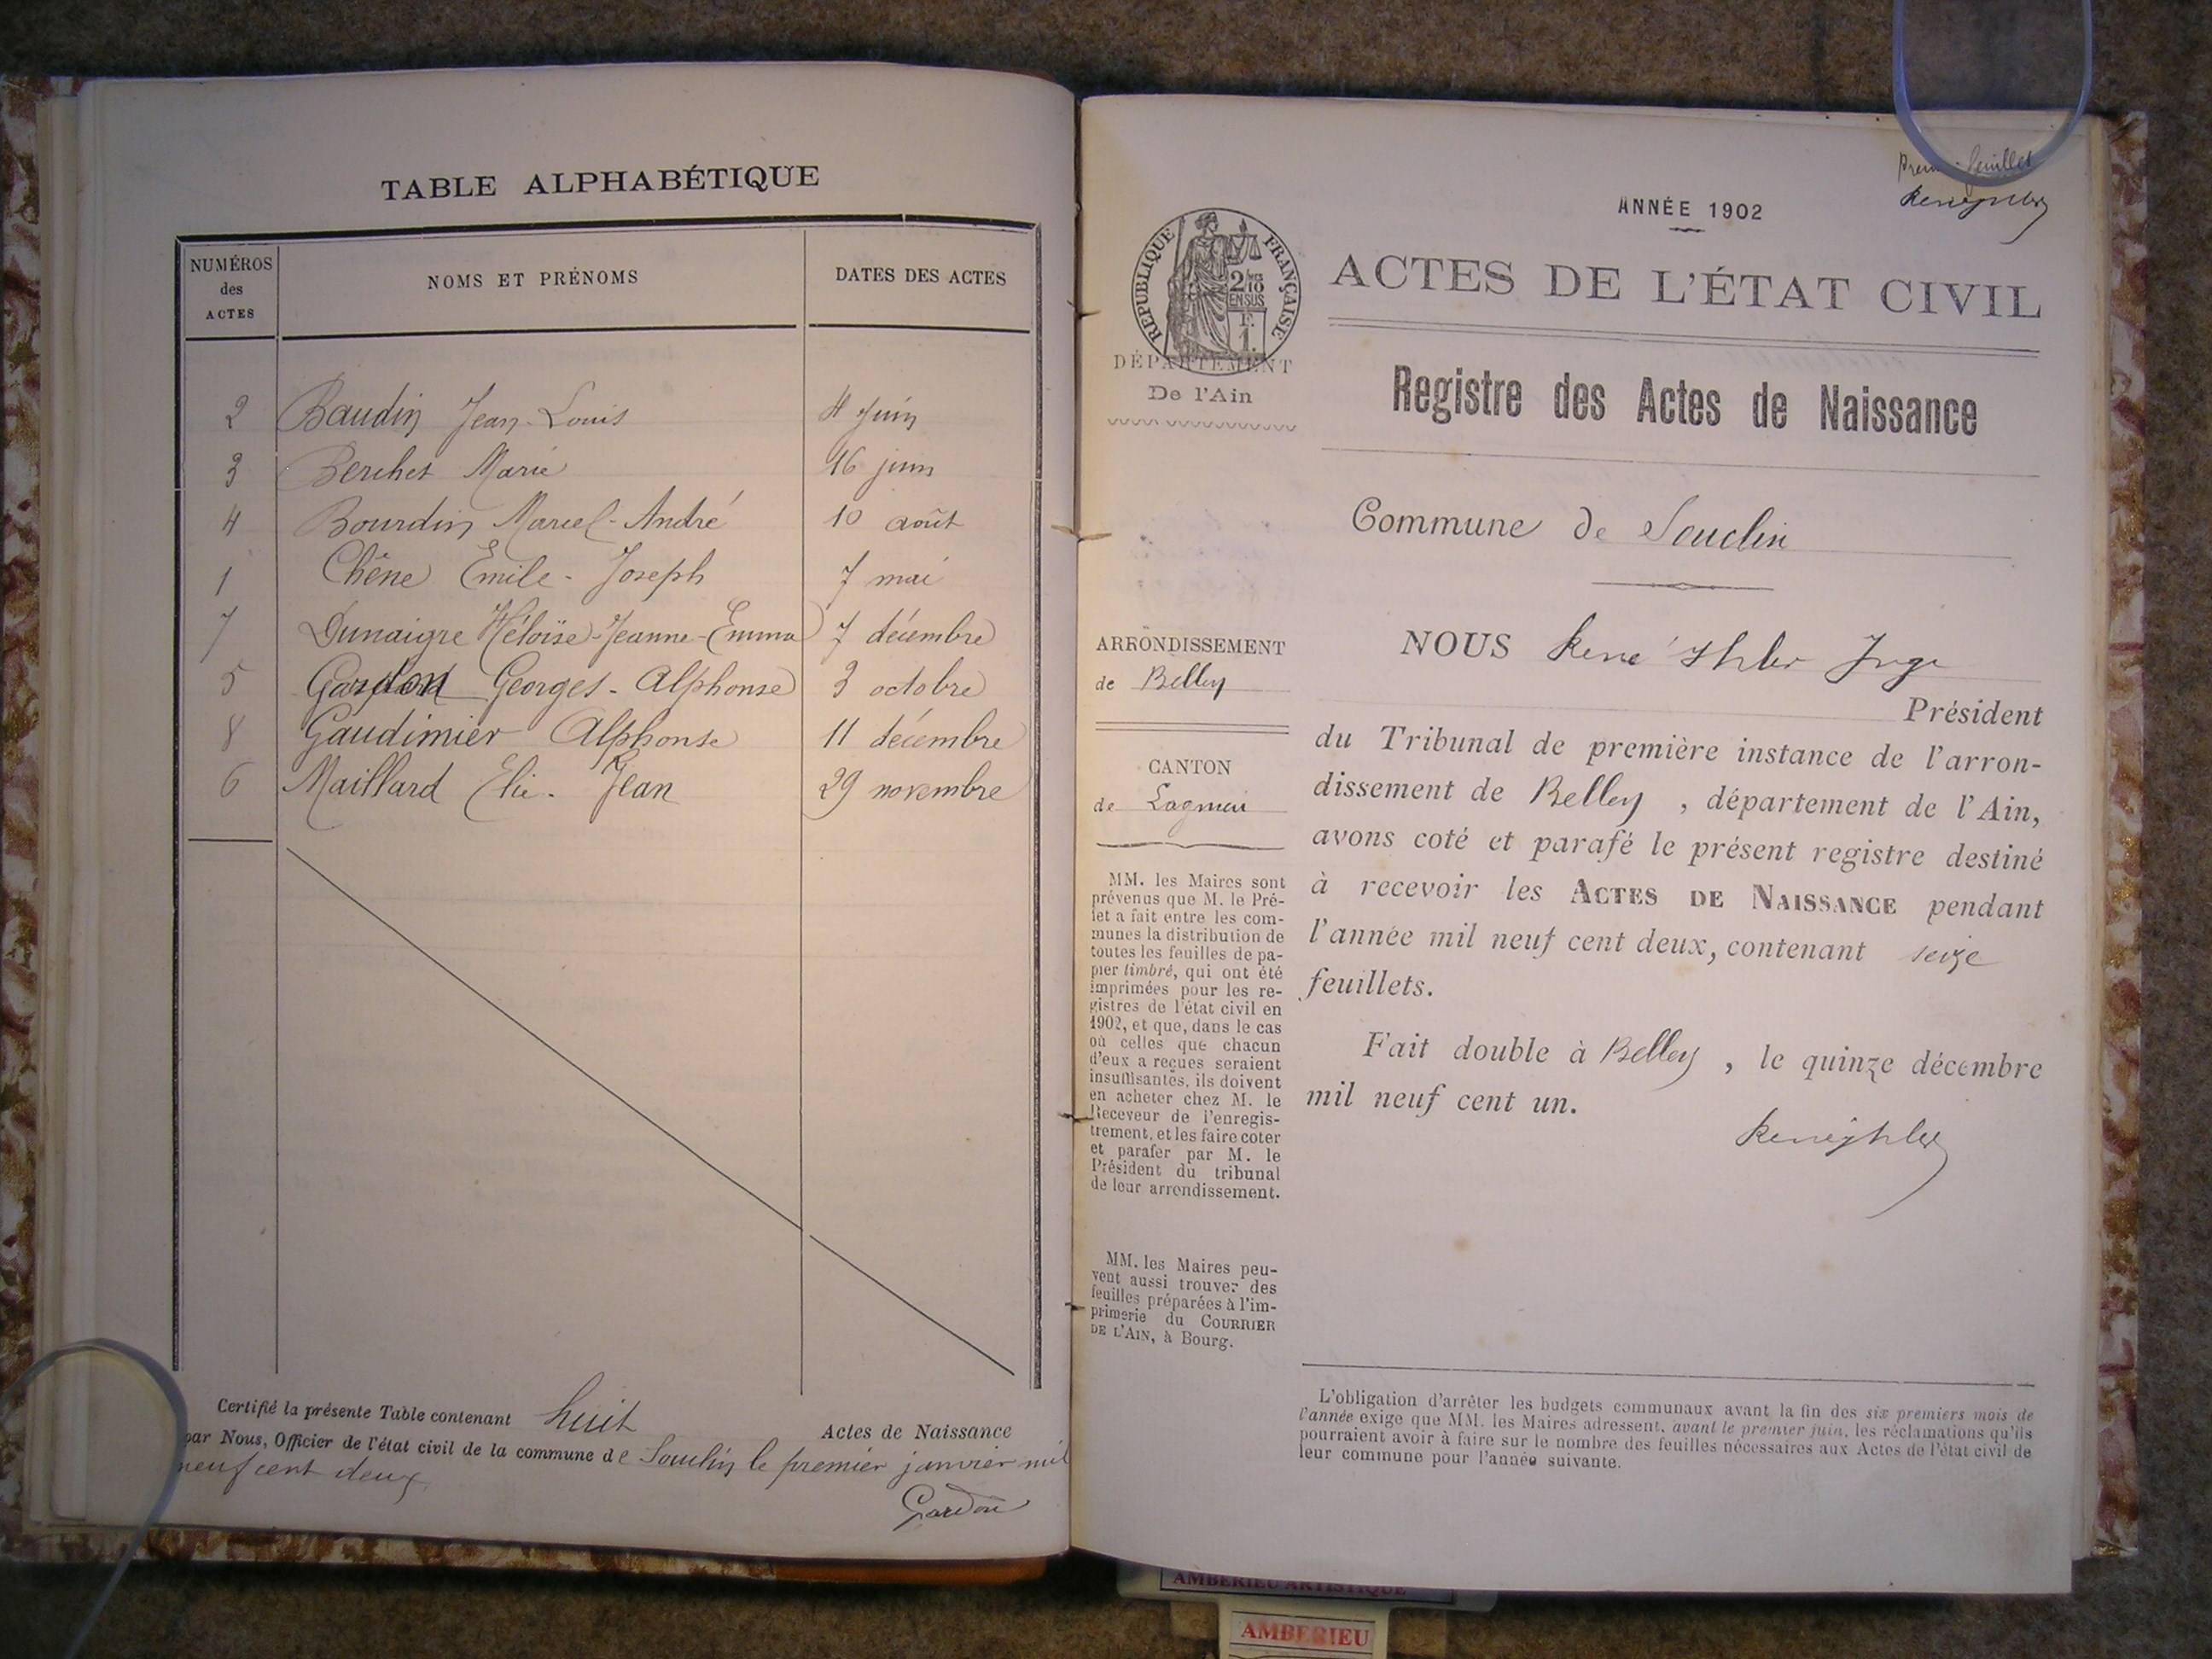 TABLE ALPHABÉTIQUE
NUMÉROS des ACTES
NOMS ET PRÉNOMS
DATES DES ACTES
2 Baudin Jean-Louis 4 Juin
3 Berchet Marie 16 juin
4 Bourdin Marcel-André 10 août
1 Chêne Emile-Joseph 7 mai
7 Dunaigre Héloïse-Jeanne-Emma 7 décembre
5 Gardon Georges-Alphonse 3 octobre
8 Gaudimier Alphonse 11 décembre
6 Maillard Elie-Jean 29 novembre
Certifié la présente Table contenant huit Actes de Naissance
par Nous, Officier de l'état civil de la commune de Souclin le premier janvier mil
neuf cent deux
Gardon
Premier feuillet
ANNÉE 1902
RÉPUBLIQUE FRANÇAISE
2/10
EN SUS
F.
1.
ACTES DE L'ÉTAT CIVIL
DÉPARTEMENT
De l'Ain
Registre des Actes de Naissance
Commune de Souclin
ARRONDISSEMENT
de Belley
CANTON
de Lagnieu
MM. les Maires sont
prévenus que M. le Pré-
fet a fait entre les com-
munes la distribution de
toutes les feuilles de pa-
pier timbré, qui ont été
imprimées pour les re-
gistres de l'état civil en
1902, et que, dans le cas
où celles que chacun
d'eux a reçues seraient
insuffisantes, ils doivent
en acheter chez M. le
Receveur de l'enregis-
trement, et les faire coter
et parafer par M. le
Président du tribunal
de leur arrondissement.
MM. les Maires peu-
vent aussi trouver des
feuilles préparées à l'im-
primerie du COURRIER
DE L'AIN, à Bourg.
NOUS René Ihler Juge
Président
du Tribunal de première instance de l'arron-
dissement de Belley , département de l'Ain,
avons coté et parafé le présent registre destiné
à recevoir les ACTES DE NAISSANCE pendant
l'année mil neuf cent deux, contenant seize
feuillets.
Fait double à Belley , le quinze décembre
mil neuf cent un.
René Ihler
L'obligation d'arrêter les budgets communaux avant la fin des six premiers mois de
l'année exige que MM. les Maires adressent, avant le premier juin, les réclamations qu'ils
pourraient avoir à faire sur le nombre des feuilles nécessaires aux Actes de l'état civil de
leur commune pour l'année suivante.
AMBERIEU ARTISTIQUE
AMBERIEU